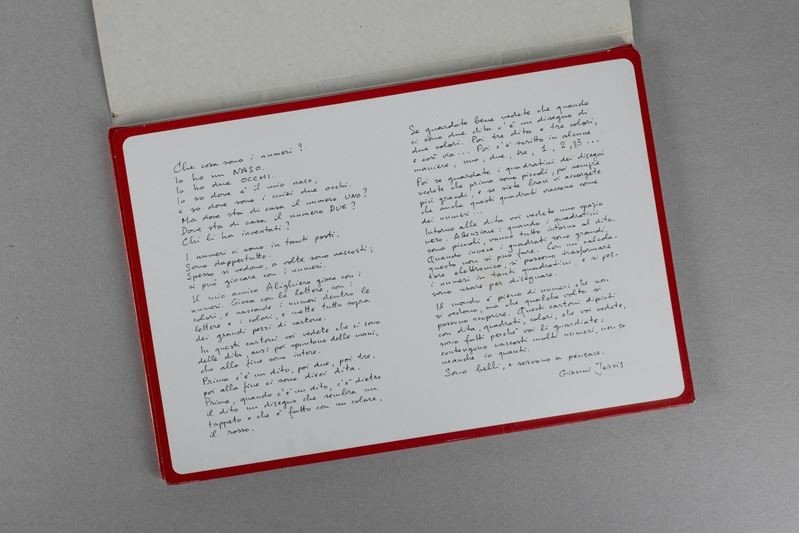 Che cosa sono i numeri?
Io ho un NASO.
Io ho due OCCHI.
Io so dove è il mio naso,
e so dove sono i miei due occhi.
Ma dove sta di casa il numero UNO?
Dove sta di casa il numero DUE?
Chi li ha inventati?
I numeri ci sono in tanti posti.
Sono dappertutto.
Spesso si vedono, a volte sono nascosti;
si può giocare con i numeri.
Il mio amico Alighiero gioca con i
numeri. Gioca con le lettere, con i
colori, e nasconde i numeri dentro le
lettere e i colori, e mette tutto sopra
dei grandi pezzi di cartone.
In questi cartoni voi vedete che ci sono
delle dita, anzi poi spuntano delle mani,
che alla fine sono intere.
Prima c'è un dito, poi due, poi tre,
poi alla fine ci sono dieci dita.
Prima, quando c'è un dito, c'è dietro
il dito un disegno che sembra un
tappeto e che è fatto con un colore,
il rosso.
Se guardate bene vedete che quando
ci sono due dita c'è un disegno di
due colori. Poi tre dita e tre colori,
e così via... Poi c'è scritto in alcune
maniere, uno, due, tre, 1, 2, 3...
Poi se guardate i quadratini dei disegni
vedete che prima sono piccoli, poi sempre
più grandi, e se siete bravi vi accorgete
che anche questi quadrati crescono come
dei numeri...
Intorno alle dita voi vedete uno spazio
nero. Attenzione: quando i quadratini
sono piccoli, vanno tutto intorno al dito.
Quando invece i quadrati sono grandi,
questo non si può fare. Con un calcola-
tore elettronico, si possono trasformare
i numeri in tanti quadratini, e si pos-
sono usare per disegnare.
Il mondo è pieno di numeri che non
si vedono, ma che qualche volta si
possono scoprire. Questi cartoni dipinti
con dita, quadrati, colori, che voi vedete,
sono fatti perché voi li guardiate;
contengono nascosti molti numeri, non so
neanche io quanti.
Sono belli, e servono a pensare.
Gianni Jervis